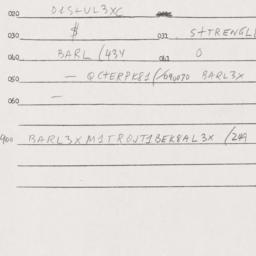 020 D1S-UL3XC
030 $ 032 S+RENGL
040 BARL (434 042 O
050 — QC+ERPK81(/690070 BARL3X
060 —
900 BARL3X M1TROJT1BEK8AL3X /249